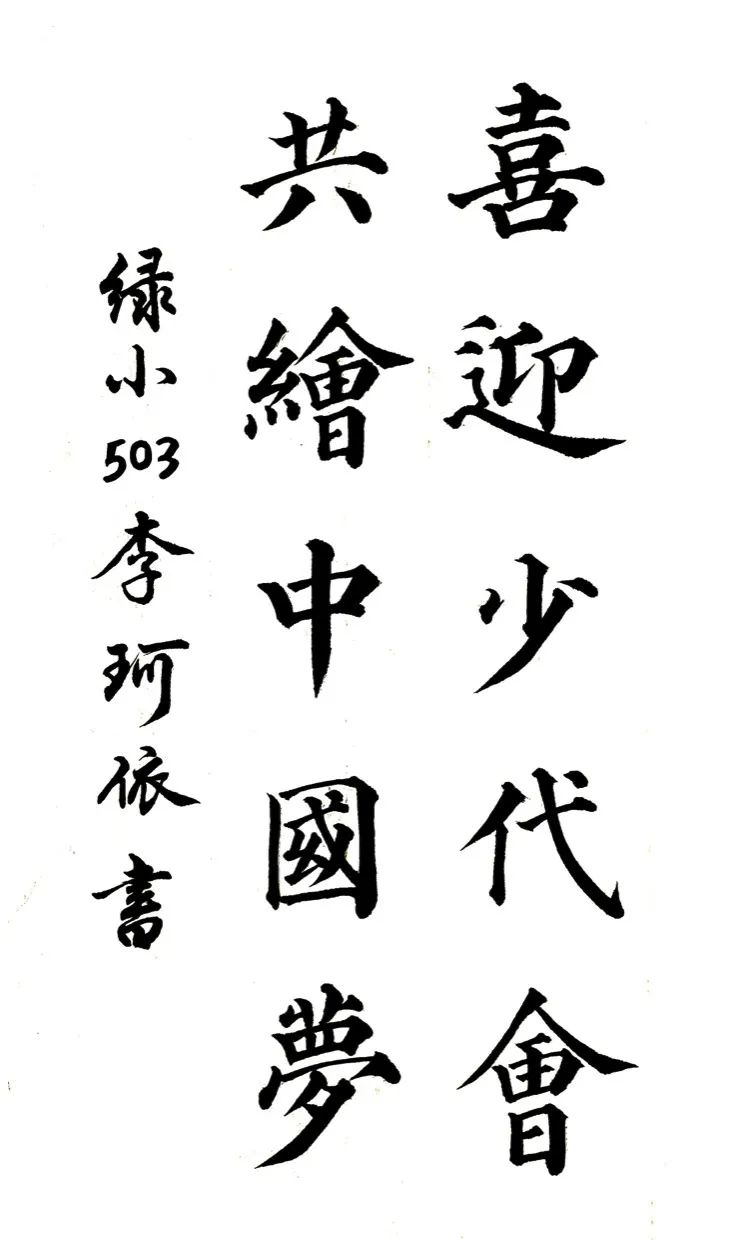 喜迎少代會
共繪中國夢
绿小503李珂依書